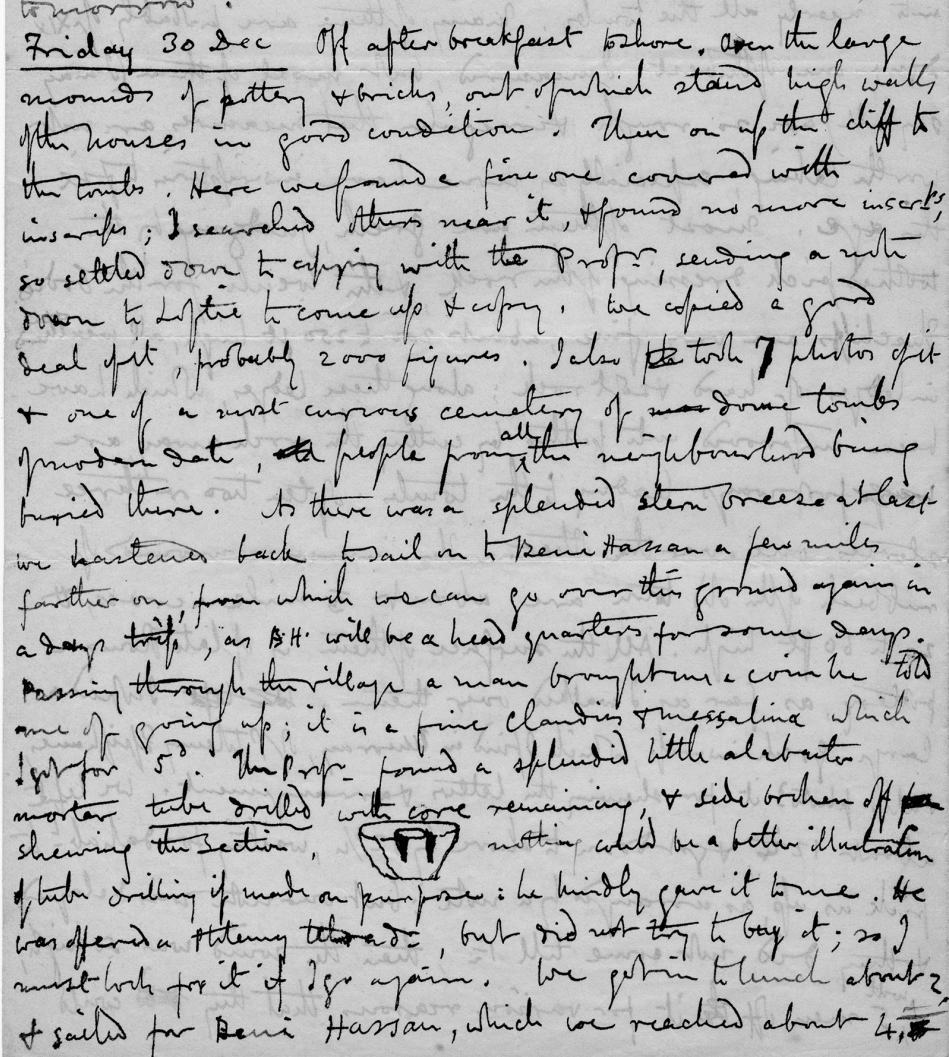 tomorrow.
Friday 30 Dec Off after breakfast to shore. Over the large
mounds of pottery & bricks, out of which stand high walls
of the houses in good condition. Then on up the cliff to
the tombs. Here we found a fine one covered with
inscrips; I searched others near it, & found no more inscrips,
so settled down to copying with the Profr., sending a note
down to Loftie to come up & copy. We copied a good
deal of it, probably 2000 figures. I also took 7 photos of it
& one of a most curious cemetery of dome tombs
of modern date, people from all the neighbourhood being
buried there. As there was a splendid stern breeze at last
we hastened back to sail on to Beni Hassan a few miles
farther on, from which we can go over this ground again in
a days trip, as B.H. will be a head quarters for some days.
Passing through the village a man brought me a coin he told
me of going up; it is a fine Claudius & Messalina which
I got for 5d. The Profr. found a splendid little alabaster
mortar tube drilled with core remaining, & side broken off
shewing the section, nothing could be a better illustration
of tube drilling if made on purpose: he kindly gave it to me. He
was offered a Ptolemy, but did not try to buy it; so I
must look for it if I go again. We got in to lunch about 2,
& sailed for Beni Hassan, which we reached about 4.